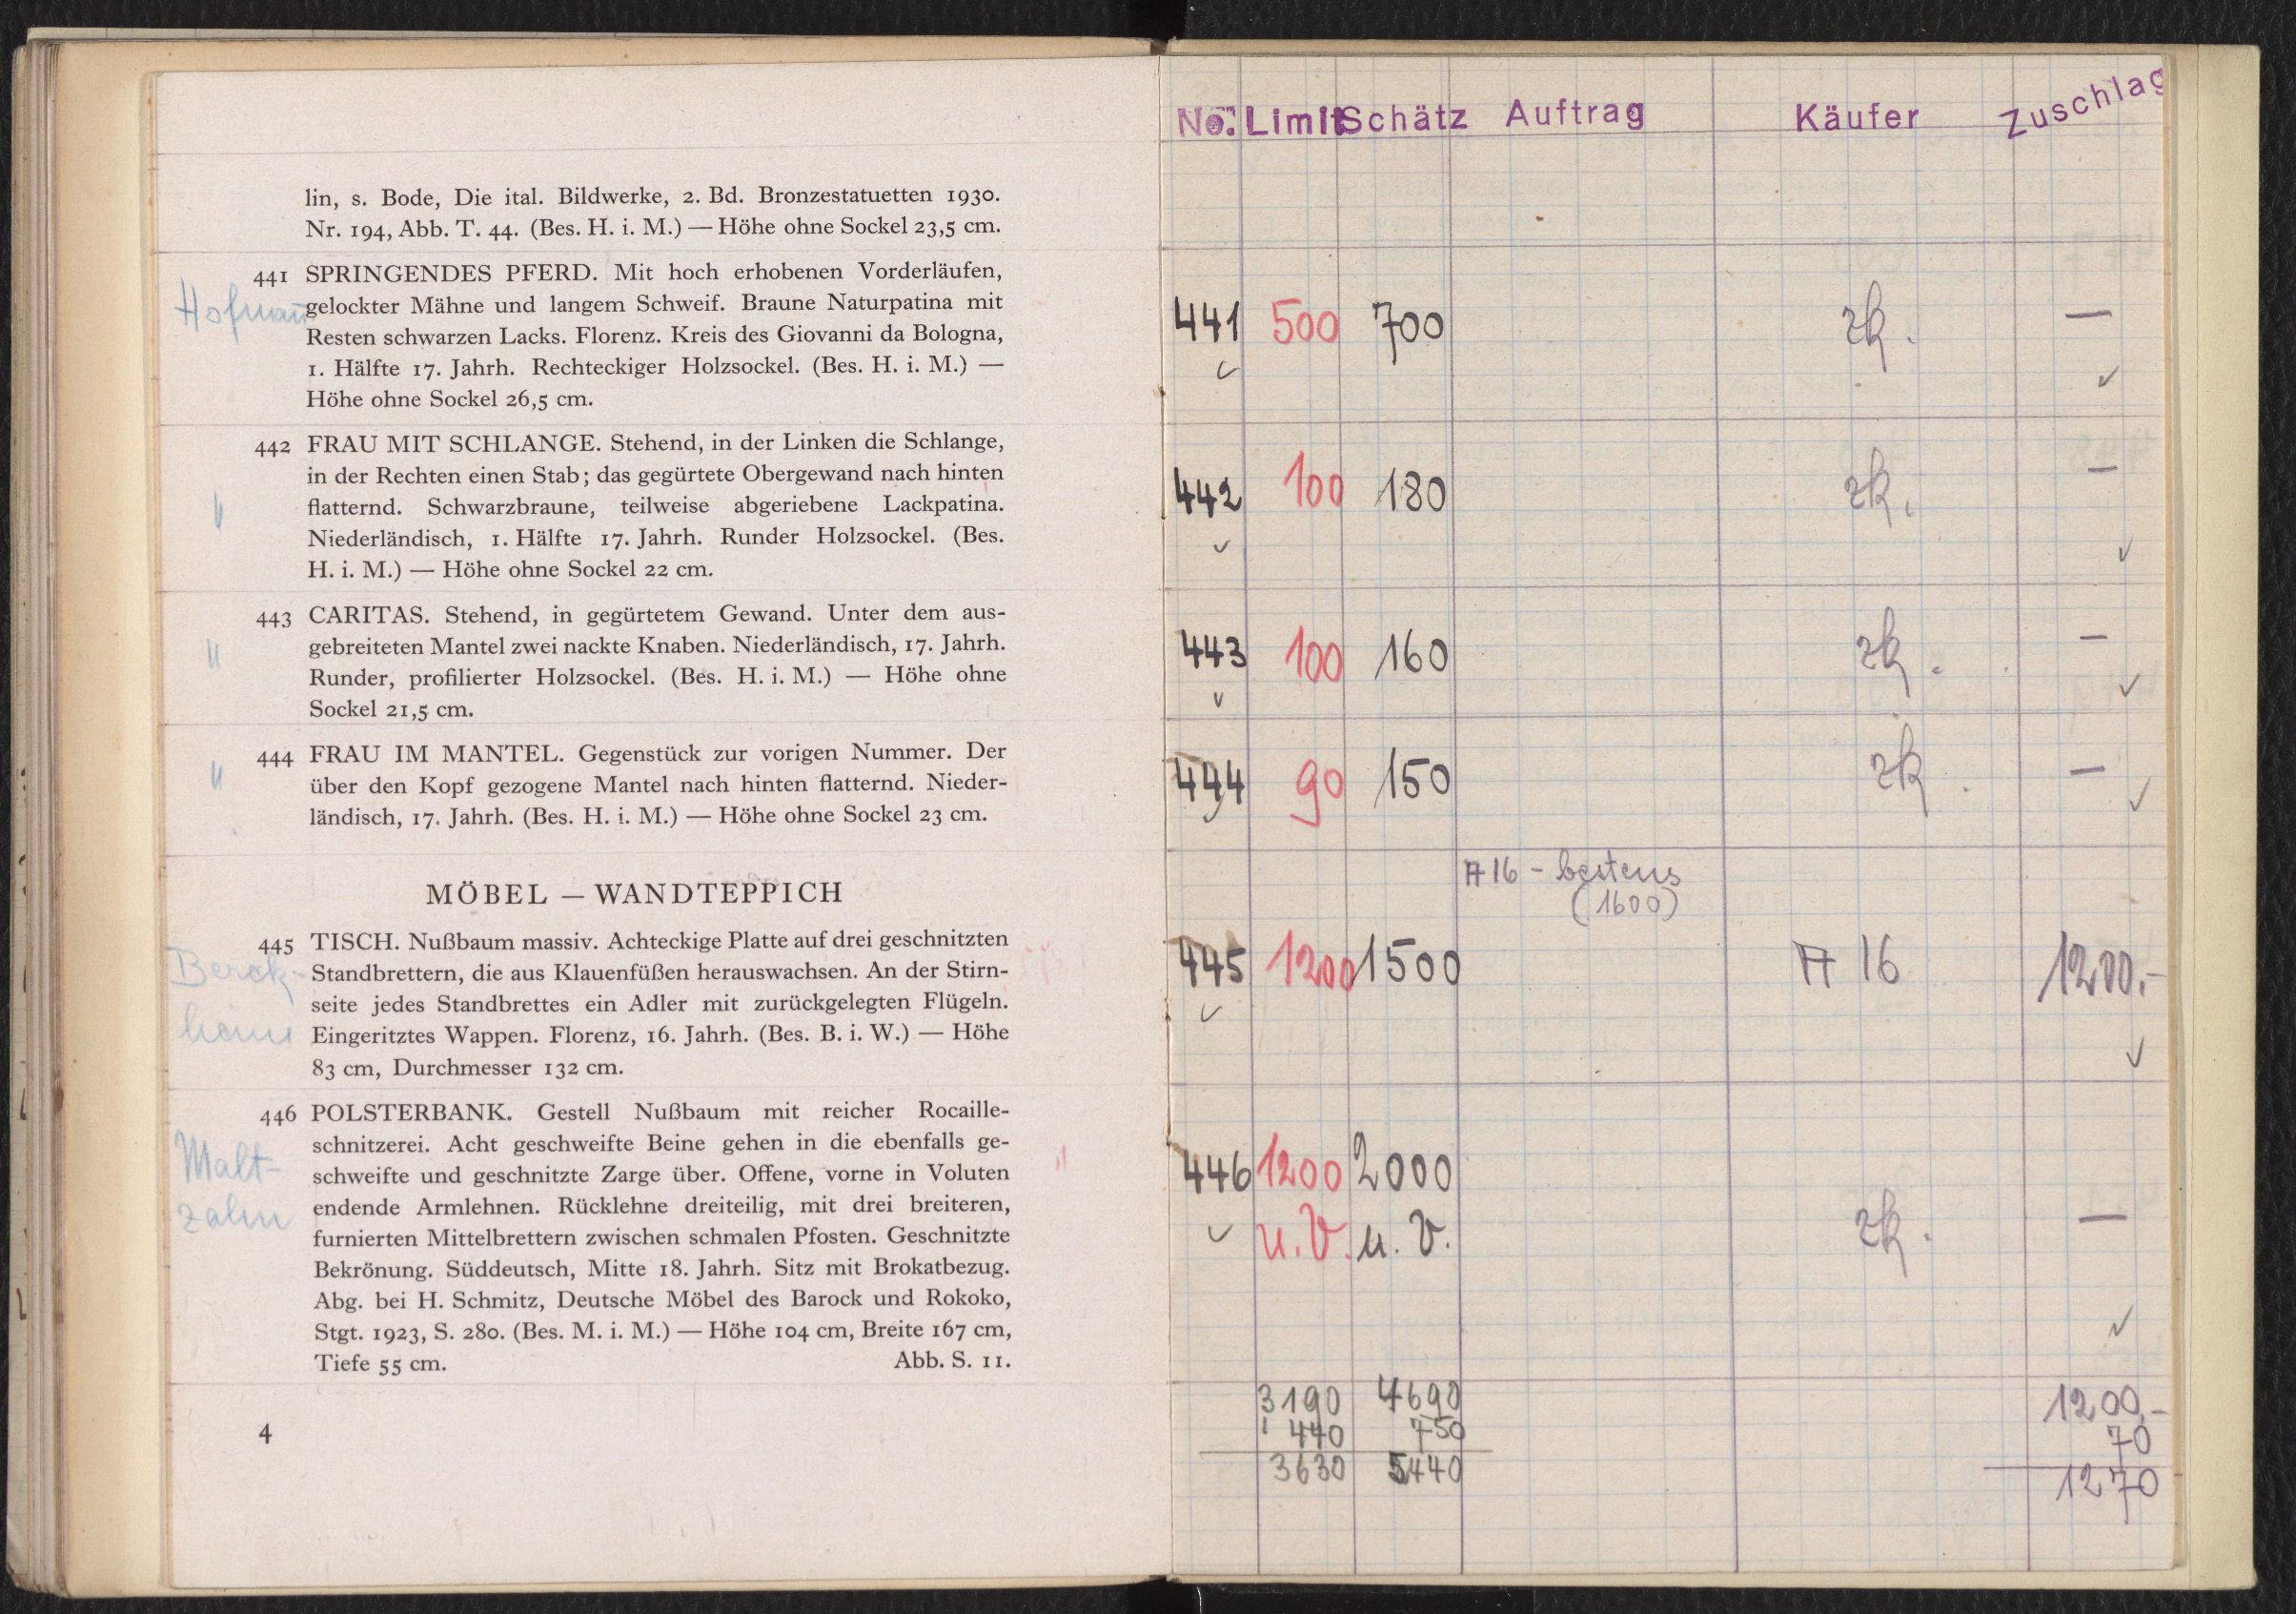 lin, s. Bode, Die ital. Bildwerke, 2. Bd. Bronzestatuetten 1930.
Nr. 194, Abb. T. 44. (Bes. H. i. M.) — Höhe ohne Sockel 23,5 cm.
441 SPRINGENDES PFERD. Mit hoch erhobenen Vorderläufen,
gelockter Mähne und langem Schweif. Braune Naturpatina mit
Resten schwarzen Lacks. Florenz. Kreis des Giovanni da Bologna,
1. Hälfte 17. Jahrh. Rechteckiger Holzsockel. (Bes. H. i. M.) —
Höhe ohne Sockel 26,5 cm.
442 FRAU MIT SCHLANGE. Stehend, in der Linken die Schlange,
in der Rechten einen Stab; das gegürtete Obergewand nach hinten
flatternd. Schwarzbraune, teilweise abgeriebene Lackpatina.
Niederländisch, 1. Hälfte 17. Jahrh. Runder Holzsockel. (Bes.
H. i. M.) — Höhe ohne Sockel 22 cm.
"
443 CARITAS. Stehend, in gegürtetem Gewand. Unter dem aus-
gebreiteten Mantel zwei nackte Knaben. Niederländisch, 17. Jahrh.
Runder, profilierter Holzsockel. (Bes. H. i. M.) — Höhe ohne
Sockel 21,5 cm.
"
444 FRAU IM MANTEL. Gegenstück zur vorigen Nummer. Der
über den Kopf gezogene Mantel nach hinten flatternd. Nieder-
ländisch, 17. Jahrh. (Bes. H. i. M.) — Höhe ohne Sockel 23 cm.
"
MÖBEL — WANDTEPPICH
445 TISCH. Nußbaum massiv. Achteckige Platte auf drei geschnitzten
Standbrettern, die aus Klauenfüßen herauswachsen. An der Stirn-
seite jedes Standbrettes ein Adler mit zurückgelegten Flügeln.
Eingeritztes Wappen. Florenz, 16. Jahrh. (Bes. B. i. W.) — Höhe
83 cm, Durchmesser 132 cm.
Berck-
446 POLSTERBANK. Gestell Nußbaum mit reicher Rocaille-
schnitzerei. Acht geschweifte Beine gehen in die ebenfalls ge-
schweifte und geschnitzte Zarge über. Offene, vorne in Voluten
endende Armlehnen. Rücklehne dreiteilig, mit drei breiteren,
furnierten Mittelbrettern zwischen schmalen Pfosten. Geschnitzte
Bekrönung. Süddeutsch, Mitte 18. Jahrh. Sitz mit Brokatbezug.
Abg. bei H. Schmitz, Deutsche Möbel des Barock und Rokoko,
Stgt. 1923, S. 280. (Bes. M. i. M.) — Höhe 104 cm, Breite 167 cm,
Tiefe 55 cm. Abb. S. 11.
Malt-
zahn
4
No. Limit Schätz Auftrag Käufer Zuschlag
441 500 700 zk. —
442 100 180 zk. —
443 100 160 zk. —
444 90 150 zk. —
A 16 - bestens
(1600)
445 1200 1500 A 16 1200.-
446 1200 2000
u. V. u. V. zk. —
3190 4690 1200.-
440 750 70
3630 5440 1270